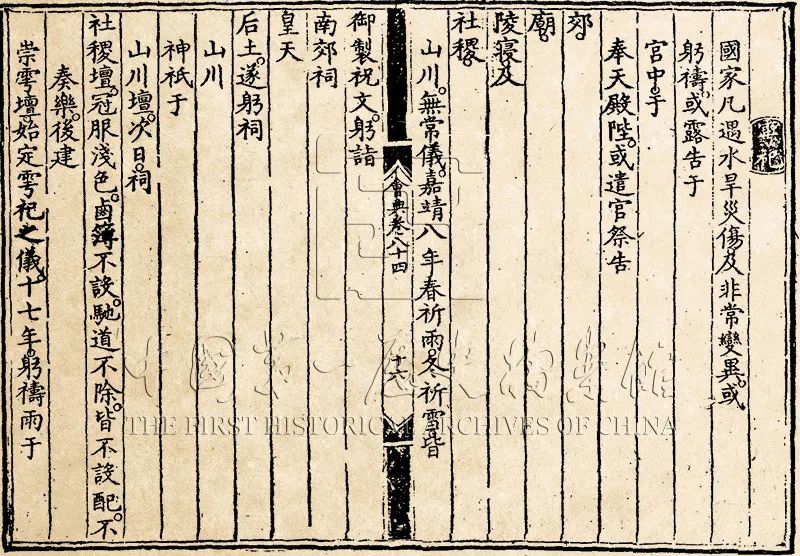 雩祀
國家凡遇水旱災傷及非常變異。或
躬禱。或露告于
宮中。于
奉天殿陛。或遣官祭告
郊。
廟。
陵寢及
社稷。
山川。無常儀。嘉靖八年春祈雨。冬祈雪。皆
會典卷八十四
十六
御製祝文。躬詣
南郊祠
皇天
后土。遂躬祠
山川
神祇于
山川壇。次日。祠
社稷壇。冠服淺色。鹵簿不設。馳道不除。皆不設配。不
奏樂。後建
崇雩壇。始定雩祀之儀。十七年。躬禱雨于
中國第一歷史檔案館
THE FIRST HISTORICAL ARCHIVES OF CHINA